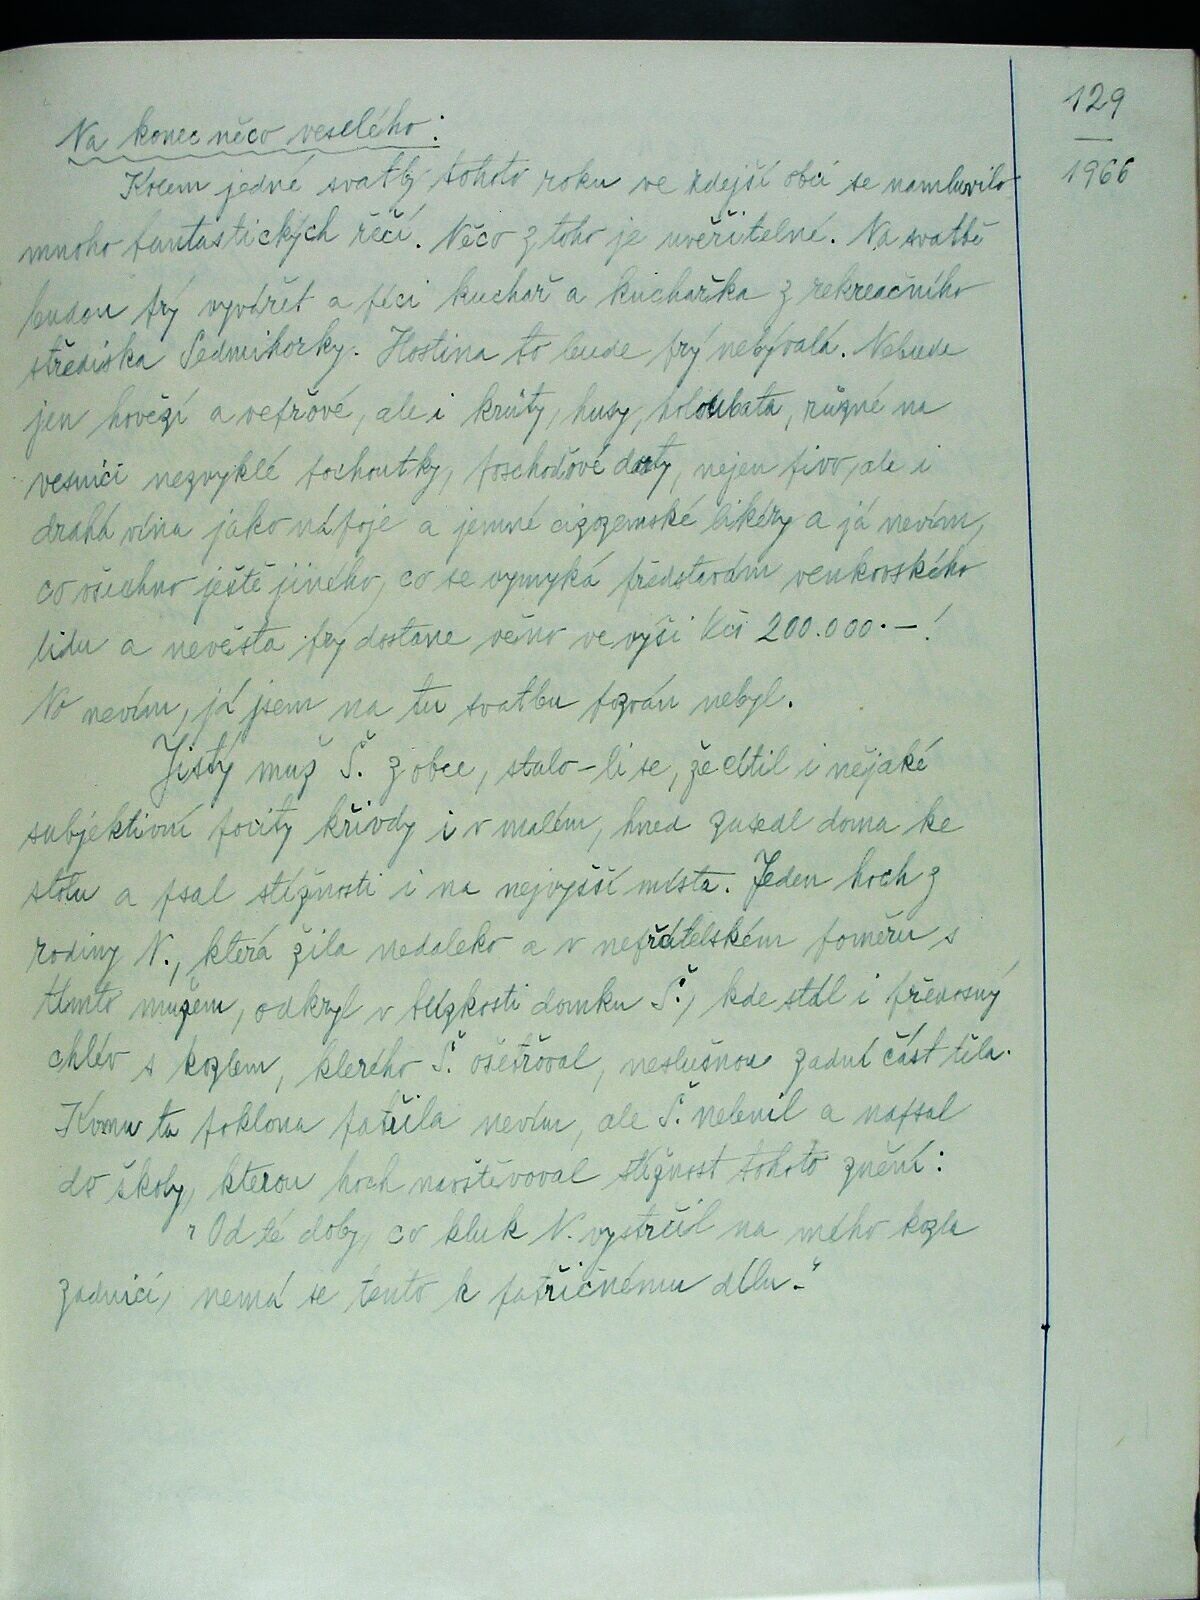 129
1966
Na konec něco veselého:
Kolem jedné svatby tohoto roku ve zdejší obci se namluvilo
mnoho fantastických řečí. Něco z toho je uvěřitelné. Na svatbě
budou prý vyvářet a péci kuchař a kuchařka z rekreačního
střediska Sedmihorky. Hostina to bude prý nebývalá. Nebude
jen hovězí a vepřové, ale i krůty, husy, holoubata, různé na
vesnici nezvyklé pochoutky, poschoďové dorty, nejen pivo, ale i
drahá vína jako nápoje a jemné cizozemské likéry a já nevím,
co všechno ještě jiného, co se vymyká představám venkovského
lidu a nevěsta prý dostane věno ve výši Kčs 200.000.-!
No nevím, já jsem na tu svatbu pozván nebyl.
Jistý muž Š. z obce, stalo-li se, že cítil i nějaké
subjektivní pocity křivdy i v malém, hned zasedl doma ke
stolu a psal stížnosti i na nejvyšší místa. Jeden hoch z
rodiny N., která žila nedaleko a v nepřátelském poměru s
tímto mužem, odkryl v blízkosti domku Š., kde stál i přenosný
chlév s kozlem, kterého Š. ošetřoval, neslušnou zadní část těla.
Komu ta poklona patřila nevím, ale Š. nelenil a napsal
do školy, kterou hoch navštěvoval stížnost tohoto znění:
"Od té doby, co kluk N. vystrčil na mého kozla
zadnici, nemá se tento k patřičnému dílu."